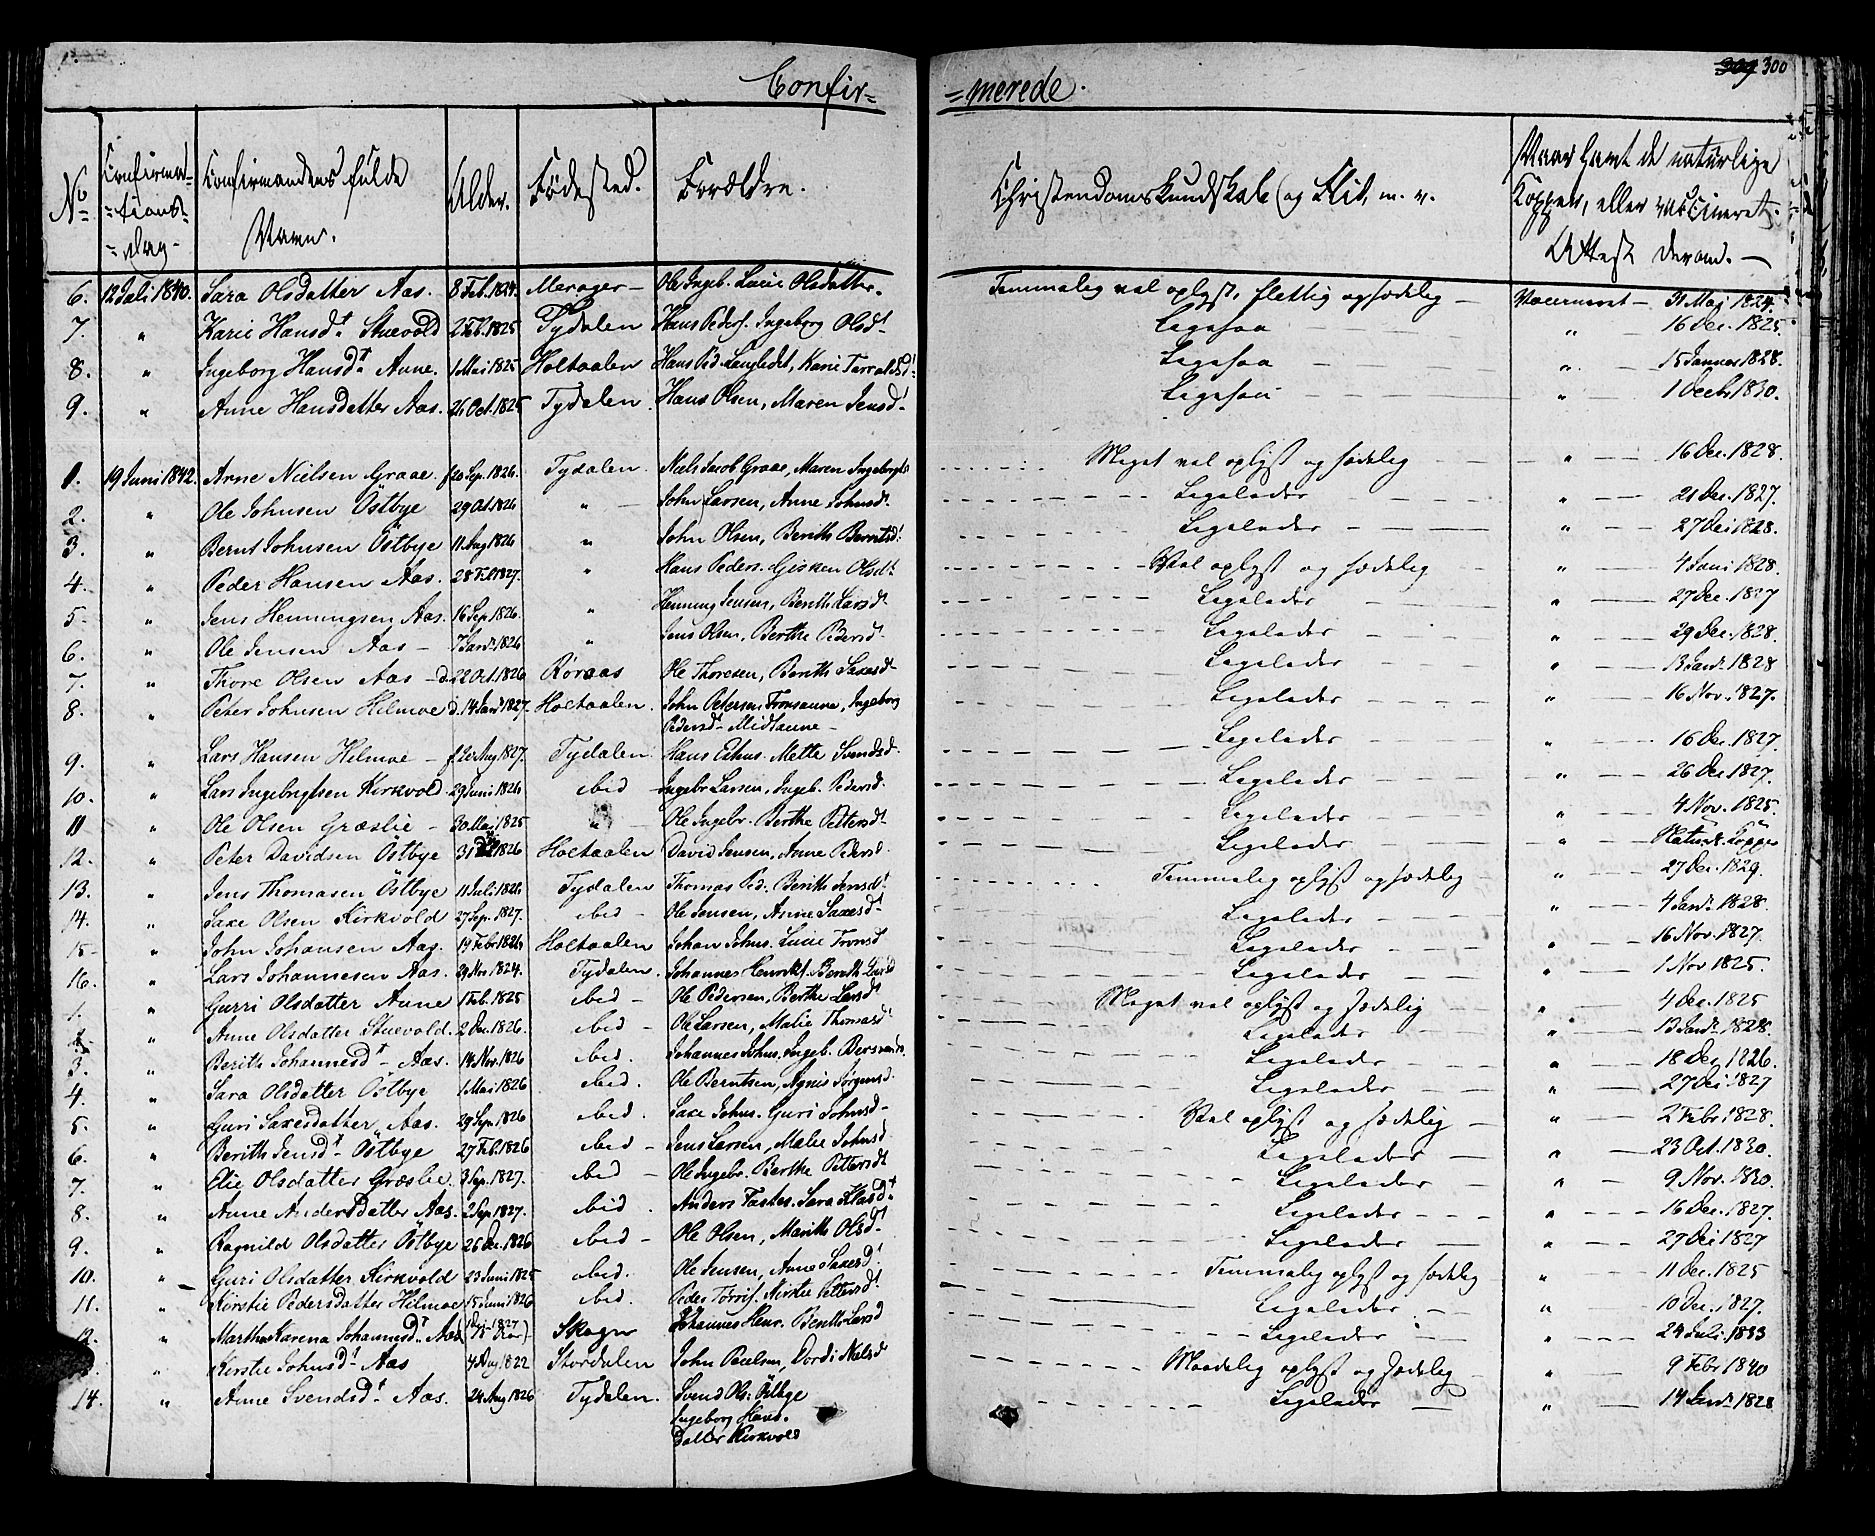 Confir=
=merede.
309 300
No
Confirma-
=tions-
=dag-
Confirmandens fulde
Navn.
Alder.
Födested.
Forældre.
Christendoms Kundskab og Flid, m. v.
Naar havt de naturlige
Kopper, eller vaccineret.
Attest derom. —
6. 12 Juli 1840. Sara Olsdatter Aas. 8 Feb. 1824. Merager — Ole Ingeb. Lucie Olsdatter. Temmelig vel oplyst, flittig og sædelig — Vaccineret — 31 Maj 1824.
7. " Karie Hansdt Stuevold 2 Feb. 1825 Tydalen Hans Peders. Ingeborg Olsdt Ligesaa " — 16 Dec. 1825.
8. " Ingeborg Hansdt Aune. 1 Mai 1825 Holtaalen Hans Ped. Langledet, Karie Tarraldsdt Ligesaa — " — 15 Januar 1828.
9. " Anne Hansdatter Aas. 26 Oct. 1825 Tydalen. Hans Olsen, Maren Jensdt Ligesaa — " — 1 Decbr 1830.
1. 19 Juni 1842. Arne Nielsen Graae. f 20 Sep. 1826. Tydalen. Niels Jacob Graae, Maren Ingebrgtsd Meget vel oplyst og sædelig — " — 16 Dec. 1828.
2. " Ole Johnsen Östbye 29 Oct. 1826 " — John Larsen, Anne Johnsdt Ligeledes — " — 21 Dec. 1827.
3. " Bernt Johnsen Östbye 11 Aug 1826 " John Olsen, Berith Berntsdt Ligeledes — " — 27 Dec 1828.
4. " Peder Hansen Aas. 28 Feb 1827. " Hans Peders. Gisken Olsdt Vel oplyst og sædelig — " — 4 Juni 1828.
5. " Jens Henningsen Aas. 16 Sep. 1826. " Henning Jensen, Berith Larsdt Ligeledes — " — 27 Dec. 1827
6. " Ole Jensen Aas — 7 Janr. 1826 " Jens Olsen, Berthe Pedersdt Ligeledes — " — 29 Dec. 1828.
7. " Thore Olsen Aas — d. 22 Oct. 1826 Röraas Ole Thoresen, Berith Saxesdt Ligeledes — " — 13 Janr. 1828
8. " Peter Johnsen Hilmoe d. 14 Janr 1827. Holtaalen. John Petersen Tronsaune, Ingeborg Ligeledes — " — 16 Nov. 1827.
Pedersdt Midtaune —
9. " Lars Hansen Hilmoe — f 20 Aug 1827. Tydalen Hans Esthus. Mette Svendsd. Ligeledes — " — 16 Dec. 1827.
10. " Lars Ingebrigtsen Kirkvold 29 Juni 1826 ibid — Ingebr. Larsen, Ingeb. Pedersd. Ligeledes — " — 26 Dec 1827.
11 " Ole Olsen Græslie — 30 Mai 1825 " — Ole Ingebr. Berthe Pettersdt Ligeledes — " — 4 Nov. 1825.
12. " Peter Davidsen Östbye 31 1826 Holtaalen David Jensen, Anne Pedersd. Ligeledes — " — Naturl. Kopper
13. " Jens Thomasen Östbye 11 Juli 1826 Tydalen Thomas Ped. Berith Jensdt Temmelig oplyst og sædelig — " — 27 Dec. 1829.
14. " Saxe Olsen Kirkvold 27 Sep. 1827. ibid — Ole Jensen, Anne Saxesdt Ligeledes — " — 4 Janr. 1828.
15 - " John Johansen Aas. 19 Febr 1826 Holtaalen Johan Johns. Lucie Tronsd Ligeledes — " — 16 Nov. 1827.
16. " Lars Johannesen Aas. 29 Nov 1824. Tydalen. Johannes Henriks. Berith Larsd Ligeledes — " — 1 Nov 1825.
1. " Gurri Olsdatter Aune 1 Feb. 1825 ibid — Ole Pedersen, Berthe Larsdt Meget vel oplyst og sædelig " — 4 Dec. 1825
2. " Anne Olsdatter Stuevold. 2 Dec. 1826. ibid — Ole Larsen, Malie Thomasdt Ligeledes — " — 13 Janr. 1828.
3. " Berith Johannesdt — Aas. 14 Nov. 1826 ibid. Johannes Johns. Ingeb. Ligeledes — " — 18 Dec 1826.
4. " Sara Olsdatter Östbye 1 Mai 1826 ibid. Ole Berntsen, Agnis Jörgensd. Ligeledes — " — 27 Dec 1827
5. " Guri Saxesdatter Aas. 29 Sep. 1826 ibid. Saxe Johns. Guri Johnsd — Vel oplyst og sædelig — " — 2 Febr 1828.
6. " Berith Jensdt Östbye 27 Feb. 1826 ibid — Jens Larsen, Malie Johnsd Ligeledes — " — 23 Oct. 1830.
7. " Elie Olsdatter Græslie. 3 Sep. 1827. ibid — Ole Ingebr. Berthe Pettersdt Ligeledes — " — 9 Nov. 1830.
8. " Anne Andersdatter Aas. 2 Sep 1827. ibid. Anders Fastes. Sara Olasdt Ligeledes — " — 16 Dec. 1827.
9. " Ragnild Olsdatter Östbye 26 Dec. 1826 ibid — Ole Olsen, Marith Olsdt Ligeledes — " — 27 Dec 1827
10. " Guri Olsdatter Kirkvold 23 Juni 1825 ibid. Ole Jensen, Anne Saxesdt Temmelig oplyst og sædelig " — 11 Dec. 1825
11. " Kirstie Pedersdatter Hilmoe 15 Juni 1826 ibid. Peder Torris. Kirstie Pettersdt Ligeledes — " — 10 Dec. 1827.
12. " Martha Karena Johannesdt Aas 1827 Skogn Johannes Henr. Berith Larsd Ligeledes — " — 24 Juli 1833
" Kirstie Johnsdt Aas 4 Aug 1822 Stördalen John Paulsen, Dordi Nielsd Maadelig oplyst og sædelig — " — 9 Febr 1840
14. " Anne Svendsdt Aas. 24 Aug 1826 Tydalen. Svend Ols. Östbye Ligeledes — " — 14 Janr. 1828
Ingeborg Hans-
datter Kirkvold